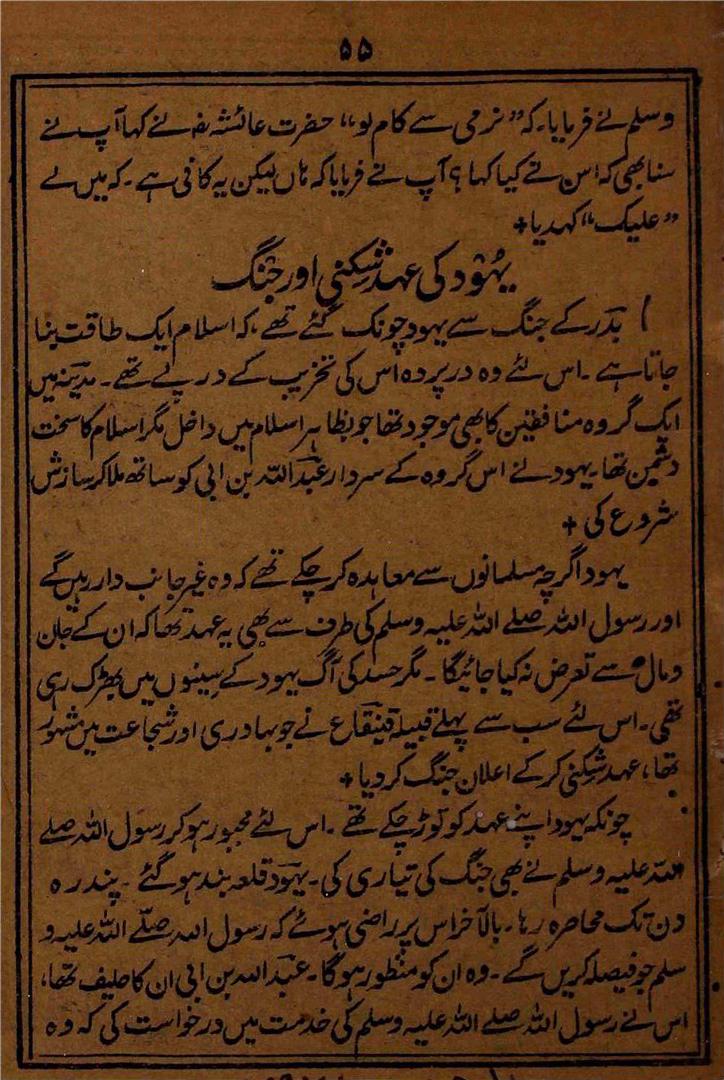 ۵۵
وسلم نے فرمایا۔ کہ "نرمی سے کام لو" حضرت عائشہؓ نے کہا آپ نے
سنا بھی کہ اس نے کیا کہا؟ آپ نے فرمایا کہ ہاں لیکن یہ کافی ہے۔ کہ میں نے
"علیک" کہدیا+
یہود کی عہد شکنی اور جنگ
بدر کے جنگ سے یہود چونک گئے تھے، کہ اسلام ایک طاقت بنا
جاتا ہے۔ اس لئے وہ در پردہ اس کی تخریب کے درپے تھے۔ مدینہ میں
ایک گروہ منافقین کا بھی موجود تھا جو بظاہر اسلام میں داخل مگر اسلام کا سخت
دشمن تھا۔ یہود نے اس گروہ کے سردار عبداللہ بن ابی کو ساتھ ملا کر سازش
شروع کی +
یہود اگرچہ مسلمانوں سے معاہدہ کر چکے تھے کہ وہ غیر جانب دار رہیں گے
اور رسول اللہ صلے اللہ علیہ وسلم کی طرف سے بھی یہ عہد تھا کہ ان کے جان
ومال سے تعرض نہ کیا جائیگا۔ مگر حسد کی آگ یہود کے سینوں میں بھڑک رہی
تھی۔ اس لئے سب سے پہلے قبیلہ قینقاع نے جو بہادری اور شجاعت میں مشہور
تھا، عہد شکنی کر کے اعلان جنگ کر دیا+
چونکہ یہود اپنے عہد کو توڑ چکے تھے۔ اس لئے مجبور ہو کر رسول اللہ صلے
اللہ علیہ وسلم نے بھی جنگ کی تیاری کی۔ یہود قلعہ بند ہو گئے۔ پندرہ
دن تک محاصرہ رہا۔ بالآخر اس پر راضی ہوئے کہ رسول اللہ صلّے اللہ علیہ و
سلم جو فیصلہ کریں گے۔ وہ ان کو منظور ہوگا۔ عبداللہ بن ابی ان کا حلیف تھا،
اس نے رسول اللہ صلے اللہ علیہ وسلم کی خدمت میں درخواست کی کہ وہ